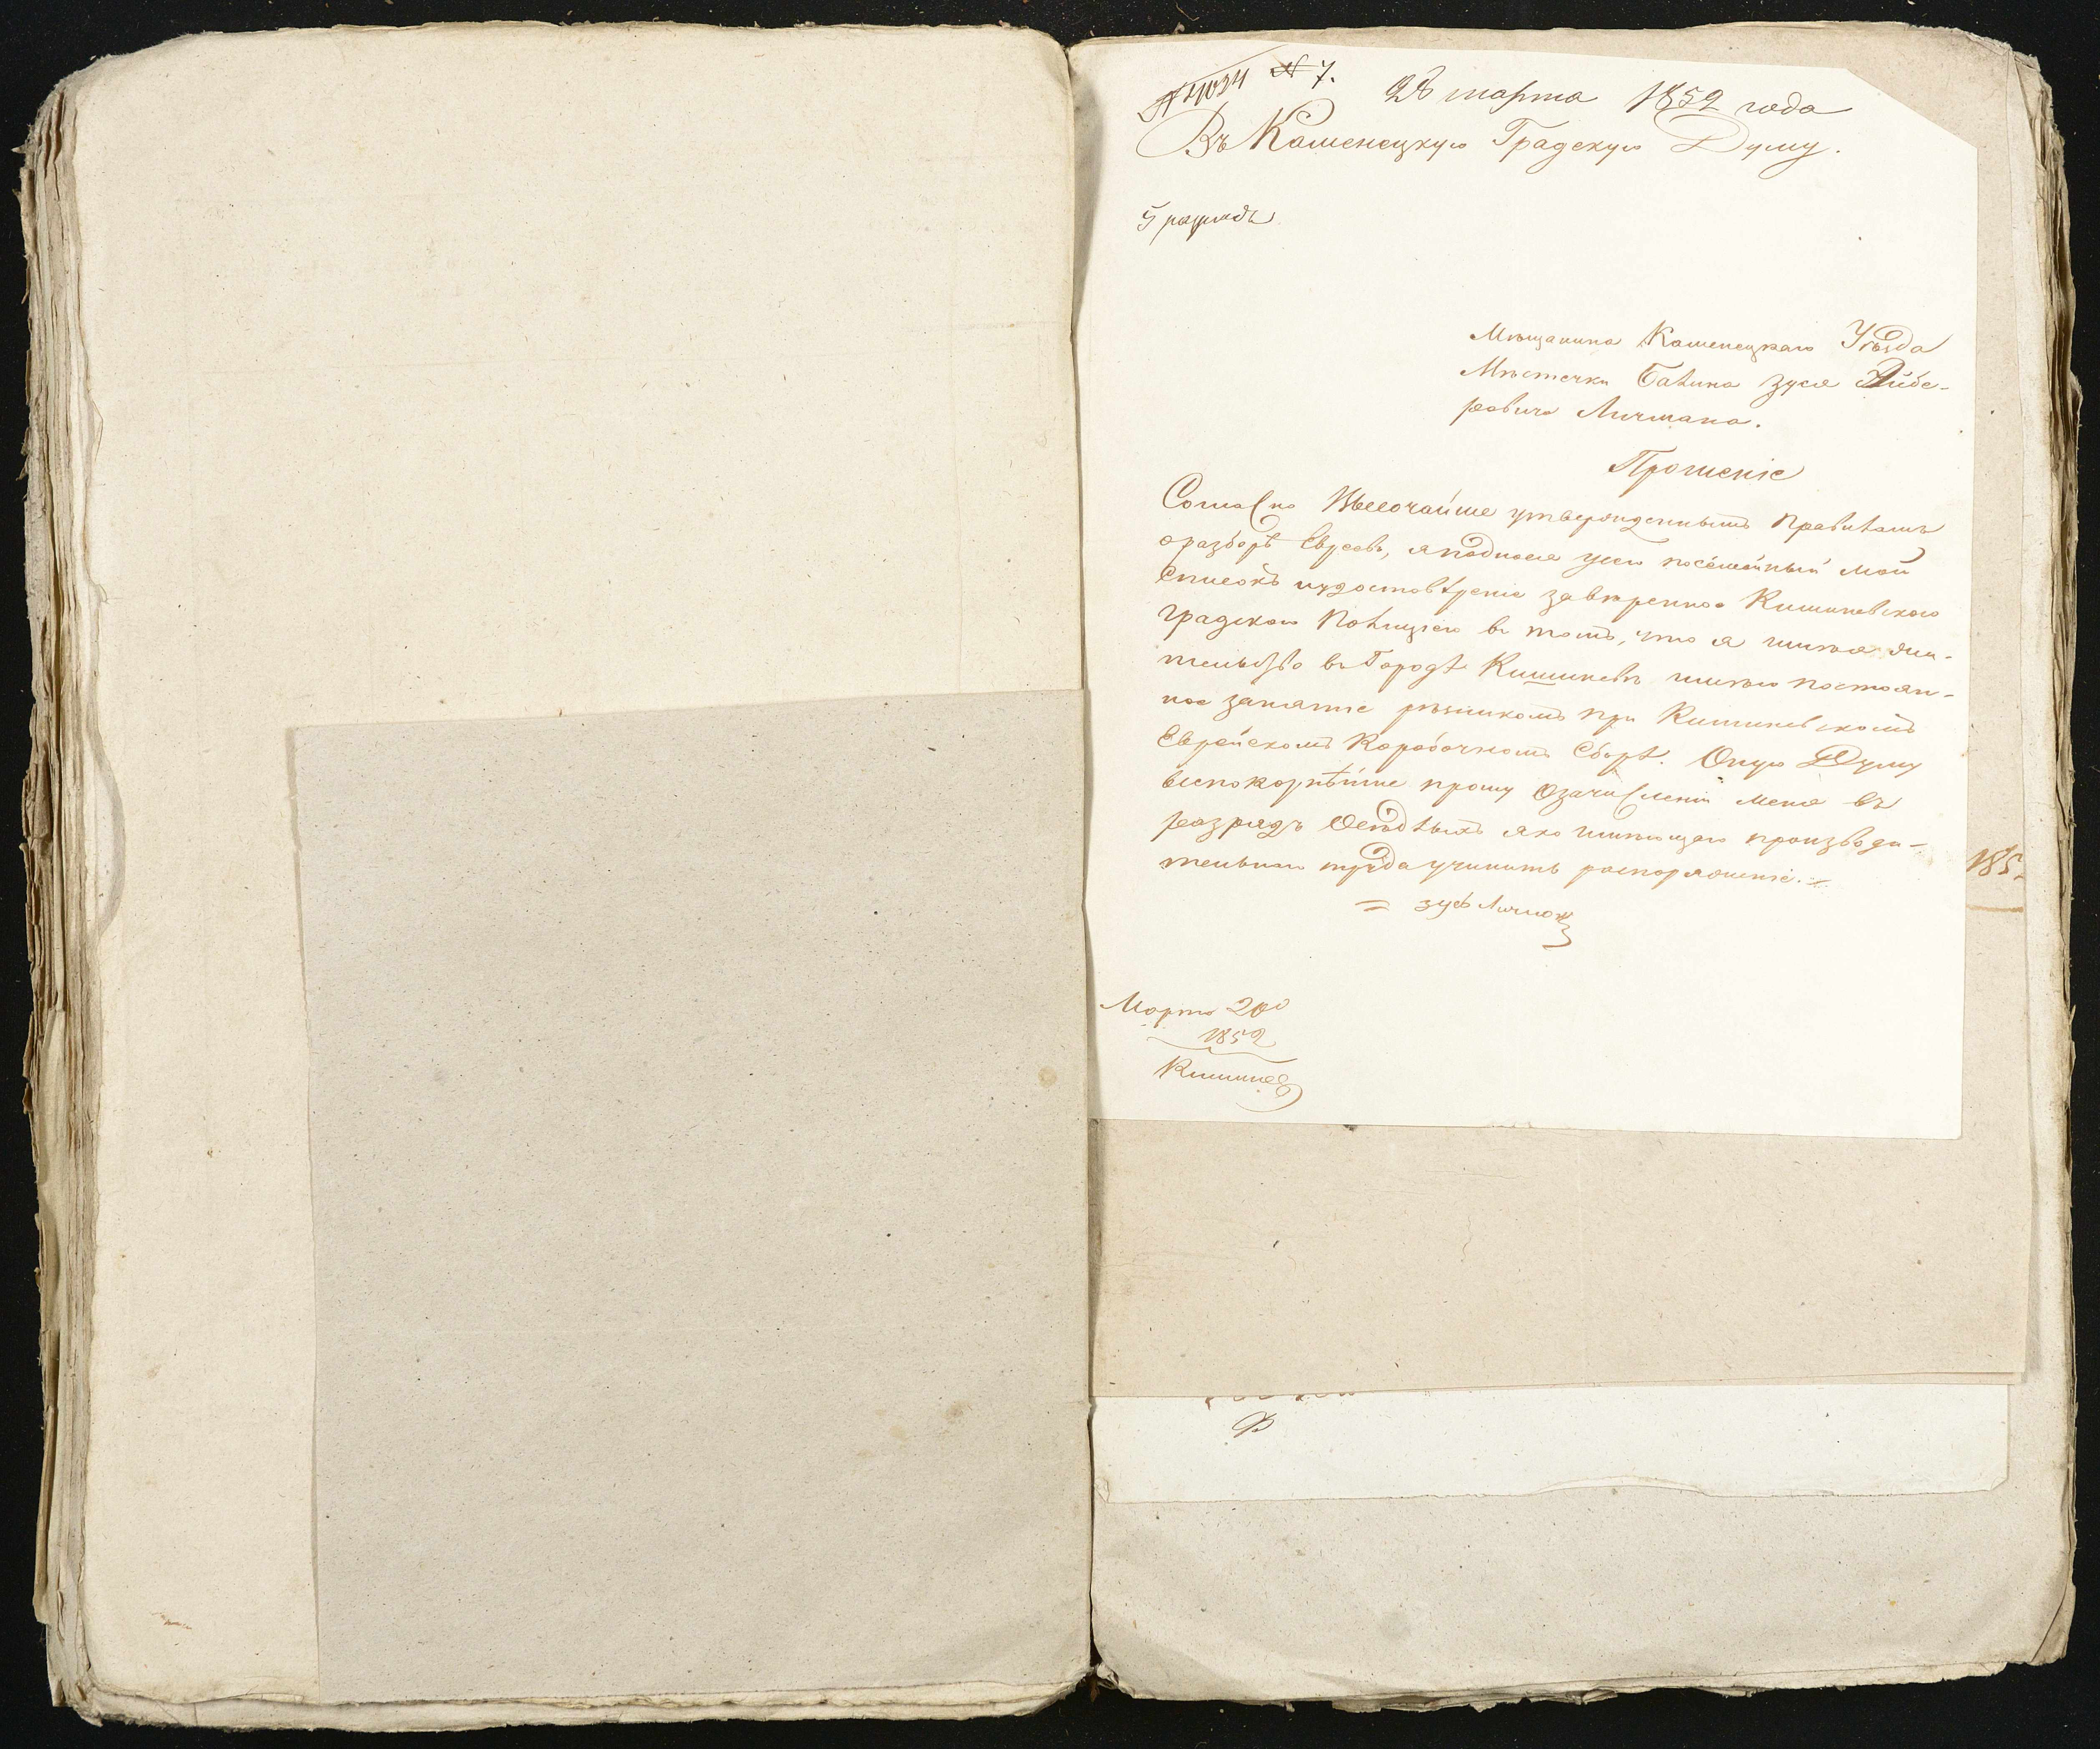 № 7.
28 марта 1852 года
Въ Каменецкую Градскую Думу.
5 разрядъ
Мѣщанина Каменецкаго Уѣзда
Мѣстечки Балина Зуся Лейбе-
ровича Личмана.
Прошеніе
Согласно Высочайше утвержденнымъ правиламъ
о разборѣ Евреевъ, я поднося у сего посемейный мой
списокъ и удостовѣреніе завѣренное Кишиневскою
градскою Полиціею въ томъ, что я имѣя жи-
тельство въ Городѣ Кишиневѣ имѣю постоян-
ное занятіе рѣзникомъ при Кишиневскомъ
Еврейскомъ Коробочномъ Сборѣ. Оную Думу
всепокорнѣйше прошу о зачисленіи меня въ
разрядъ осѣдлыхъ яко имѣющаго производи-
тельнаго труда учинить распоряженіе.
= Зусь Личман
Марта 20
1852
Кишинев
185